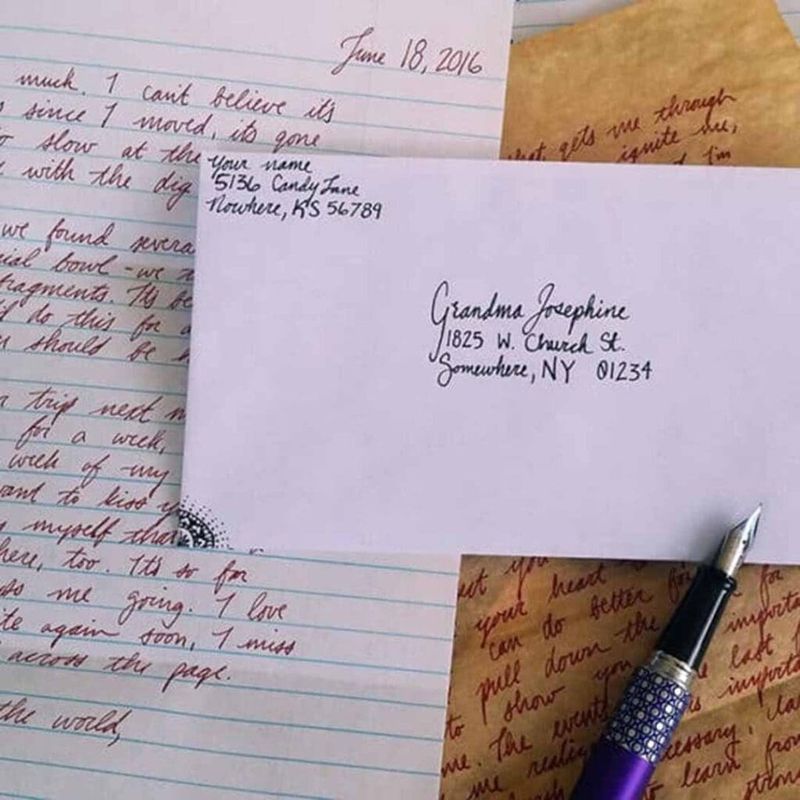 June 18, 2016
much. I can't believe it's
since I moved, it's gone
slow at the
with the dig
we found severa
bowl - we
fragments. It's be
do this for a
should be h
trip next
for a week,
week of my
want to kiss y
myself than
here, too. It's so far
me going. I love
again soon, I miss
across the page.
the world,
that gets me through
ignite me,
I'm
Your name
5136 Candy Lane
Nowhere, KS 56789
Grandma Josephine
1825 W. Church St.
Somewhere, NY 01234
your heart for
can do better
important
pull down the last
to show you importa
me. The event necessary.
me learn from
strong